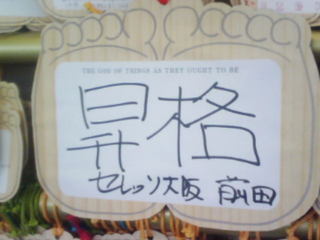 THE GOD OF THINGS AS THEY OUGHT TO BE
昇格
セレッソ大阪 前田